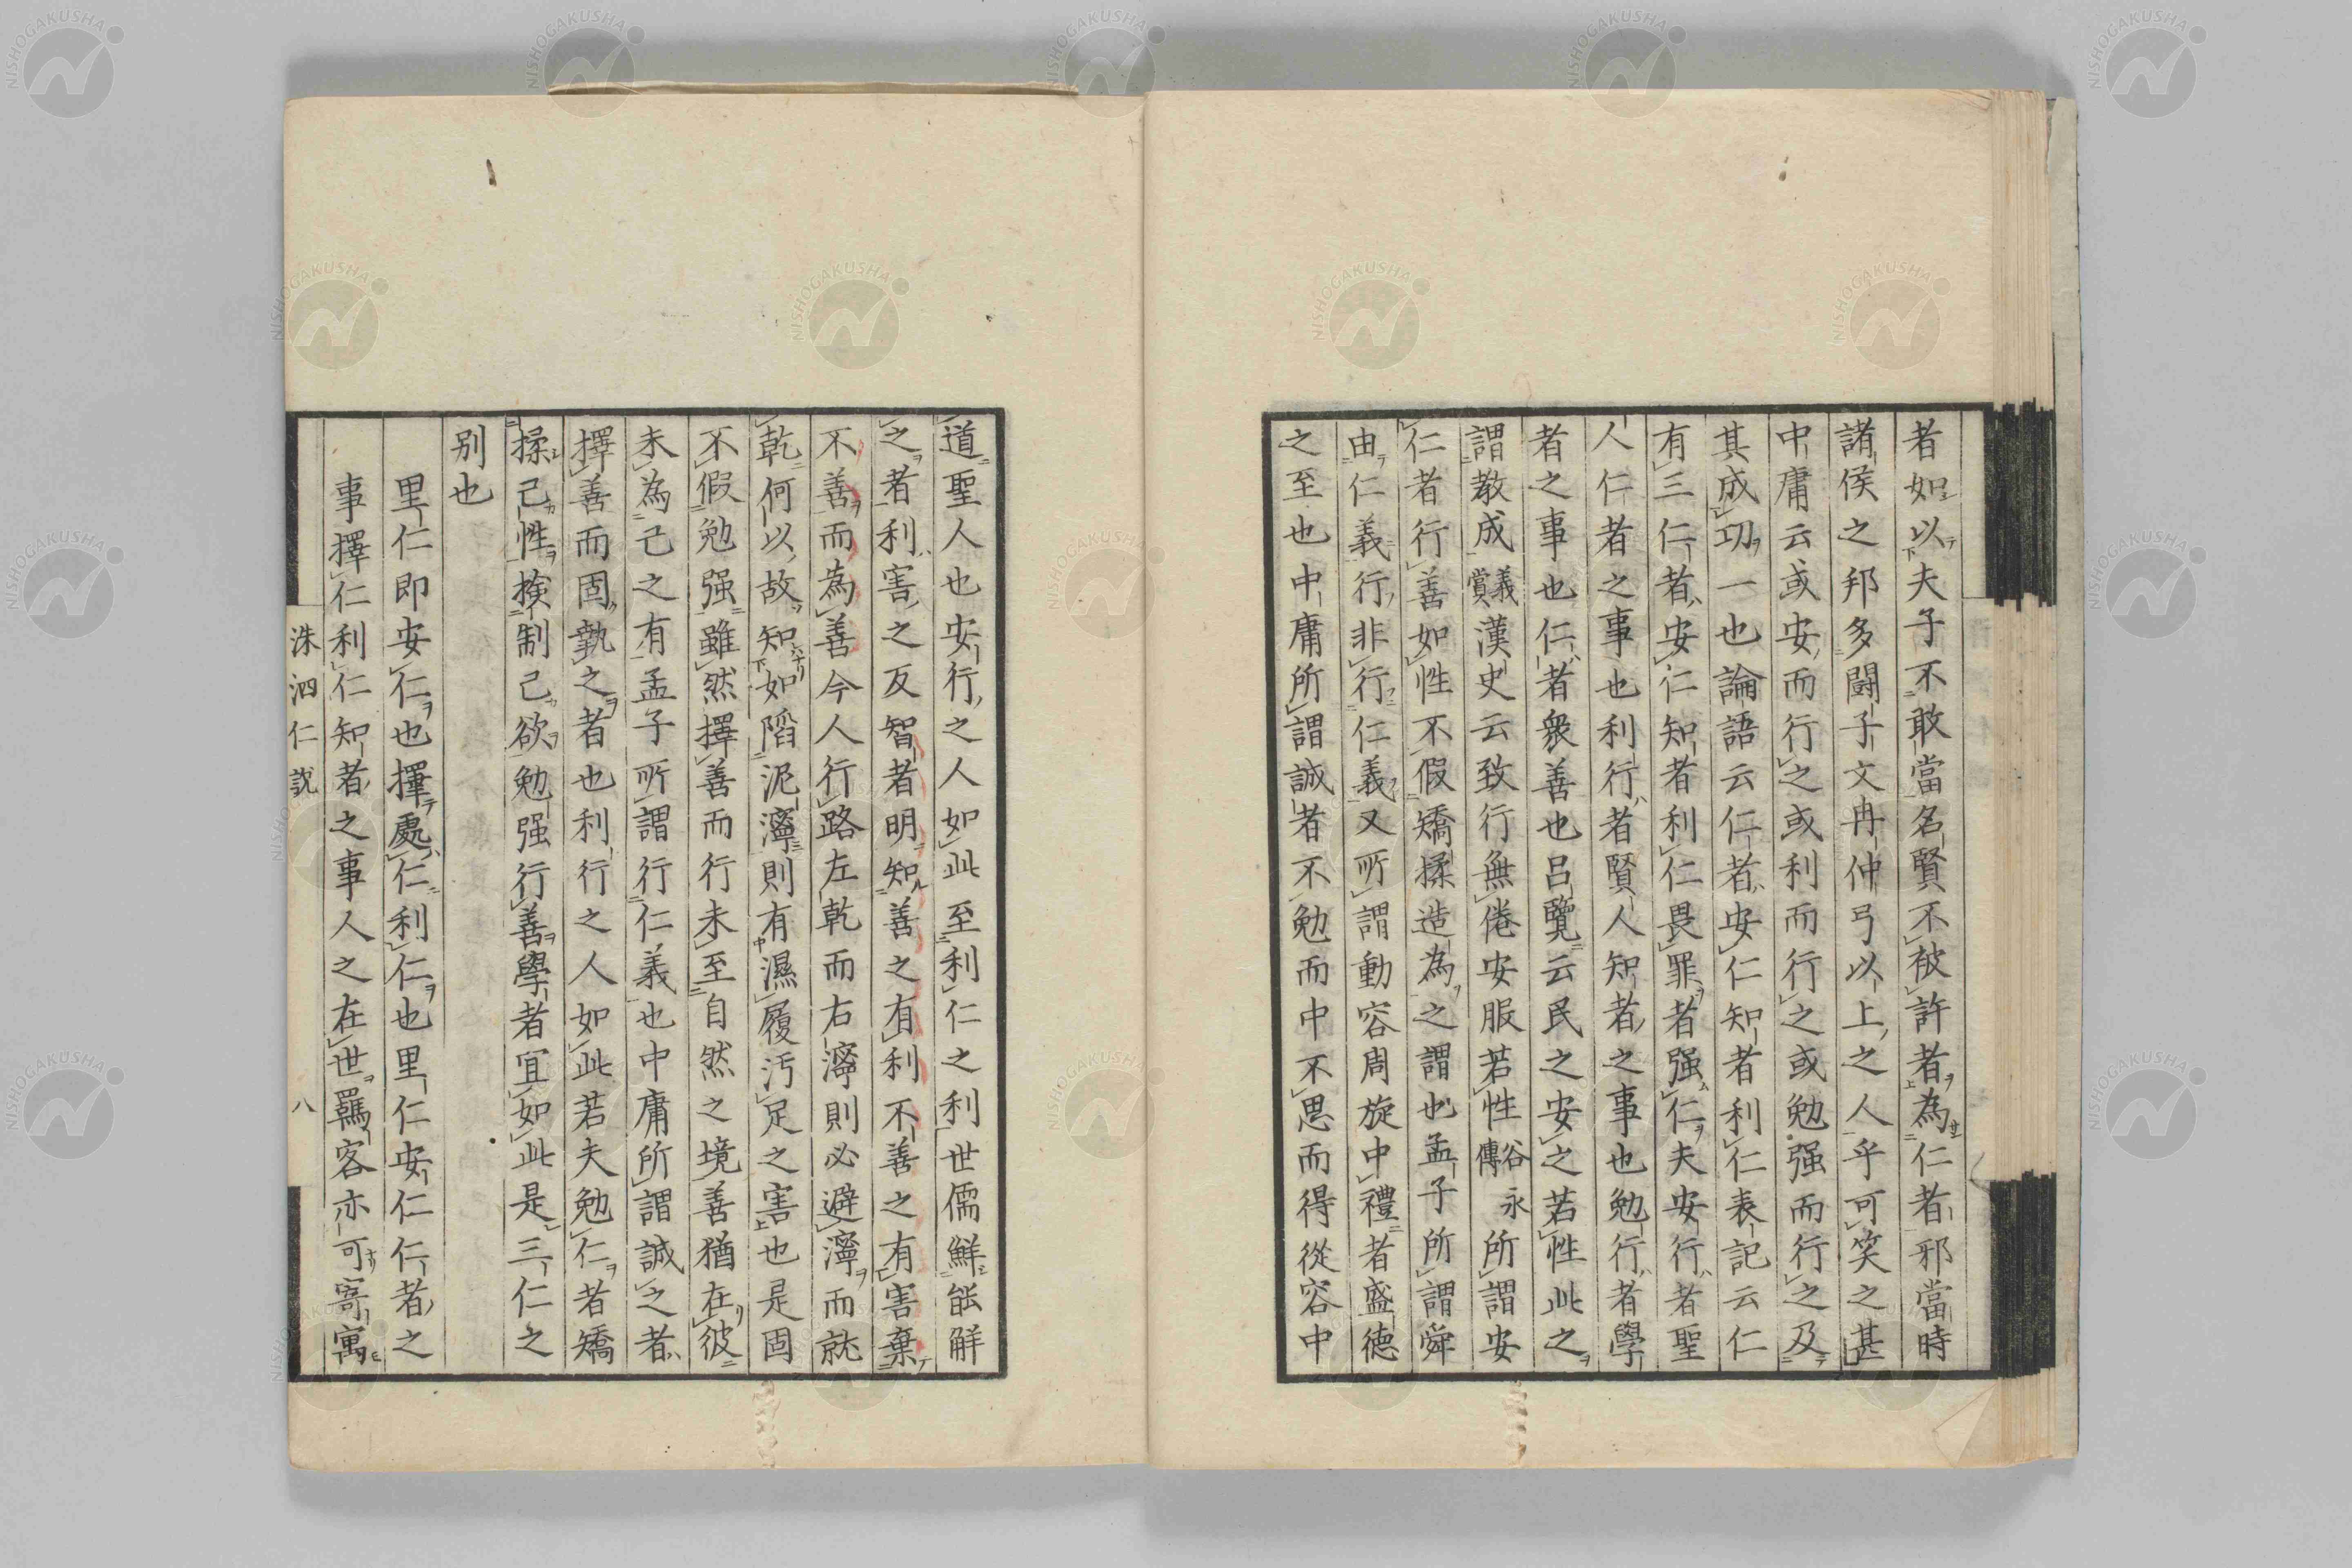 者如以夫子不敢當名賢不被許者為仁者邪當時
諸侯之邦多闘子文冉仲弓以上之人乎可笑之甚
中庸云或安而行之或利而行之或勉强而行之及
其成功一也論語云仁者安仁知者利仁表記云仁
有三仁者安仁知者利仁畏罪者强仁夫安行者聖
人仁者之事也利行者賢人知者之事也勉行者學
者之事也仁者衆善也呂覽云民之安之若性此之
謂教成義賞漢史云致行無倦安服若性谷永傳所謂安
仁者行善如性不假矯揉造為之謂也孟子所謂舜
由仁義行非行仁義又所謂動容周旋中禮者盛德
之至也中庸所謂誠者不勉而中不思而得從容中
道聖人也安行之人如此至利仁之利世儒鮮能解
之者利害之反智者明知善之有利不善之有害棄
不善而為善今人行路左乾而右濘則必避濘而就
乾何以故知如陷泥濘則有濕履汚足之害也是固
不假勉强雖然擇善而行未至自然之境善猶在彼
未為己之有孟子所謂行仁義也中庸所謂誠之者
擇善而固執之者也利行之人如此若夫勉仁者矯
揉己性撿制己欲勉强行善學者宜如此是三仁之
別也
里仁即安仁也擇處仁利仁也里仁安仁仁者之
事擇仁利仁知者之事人之在世羈客亦可寄寓
洙泗仁説
八
NISHOGAKUSHA